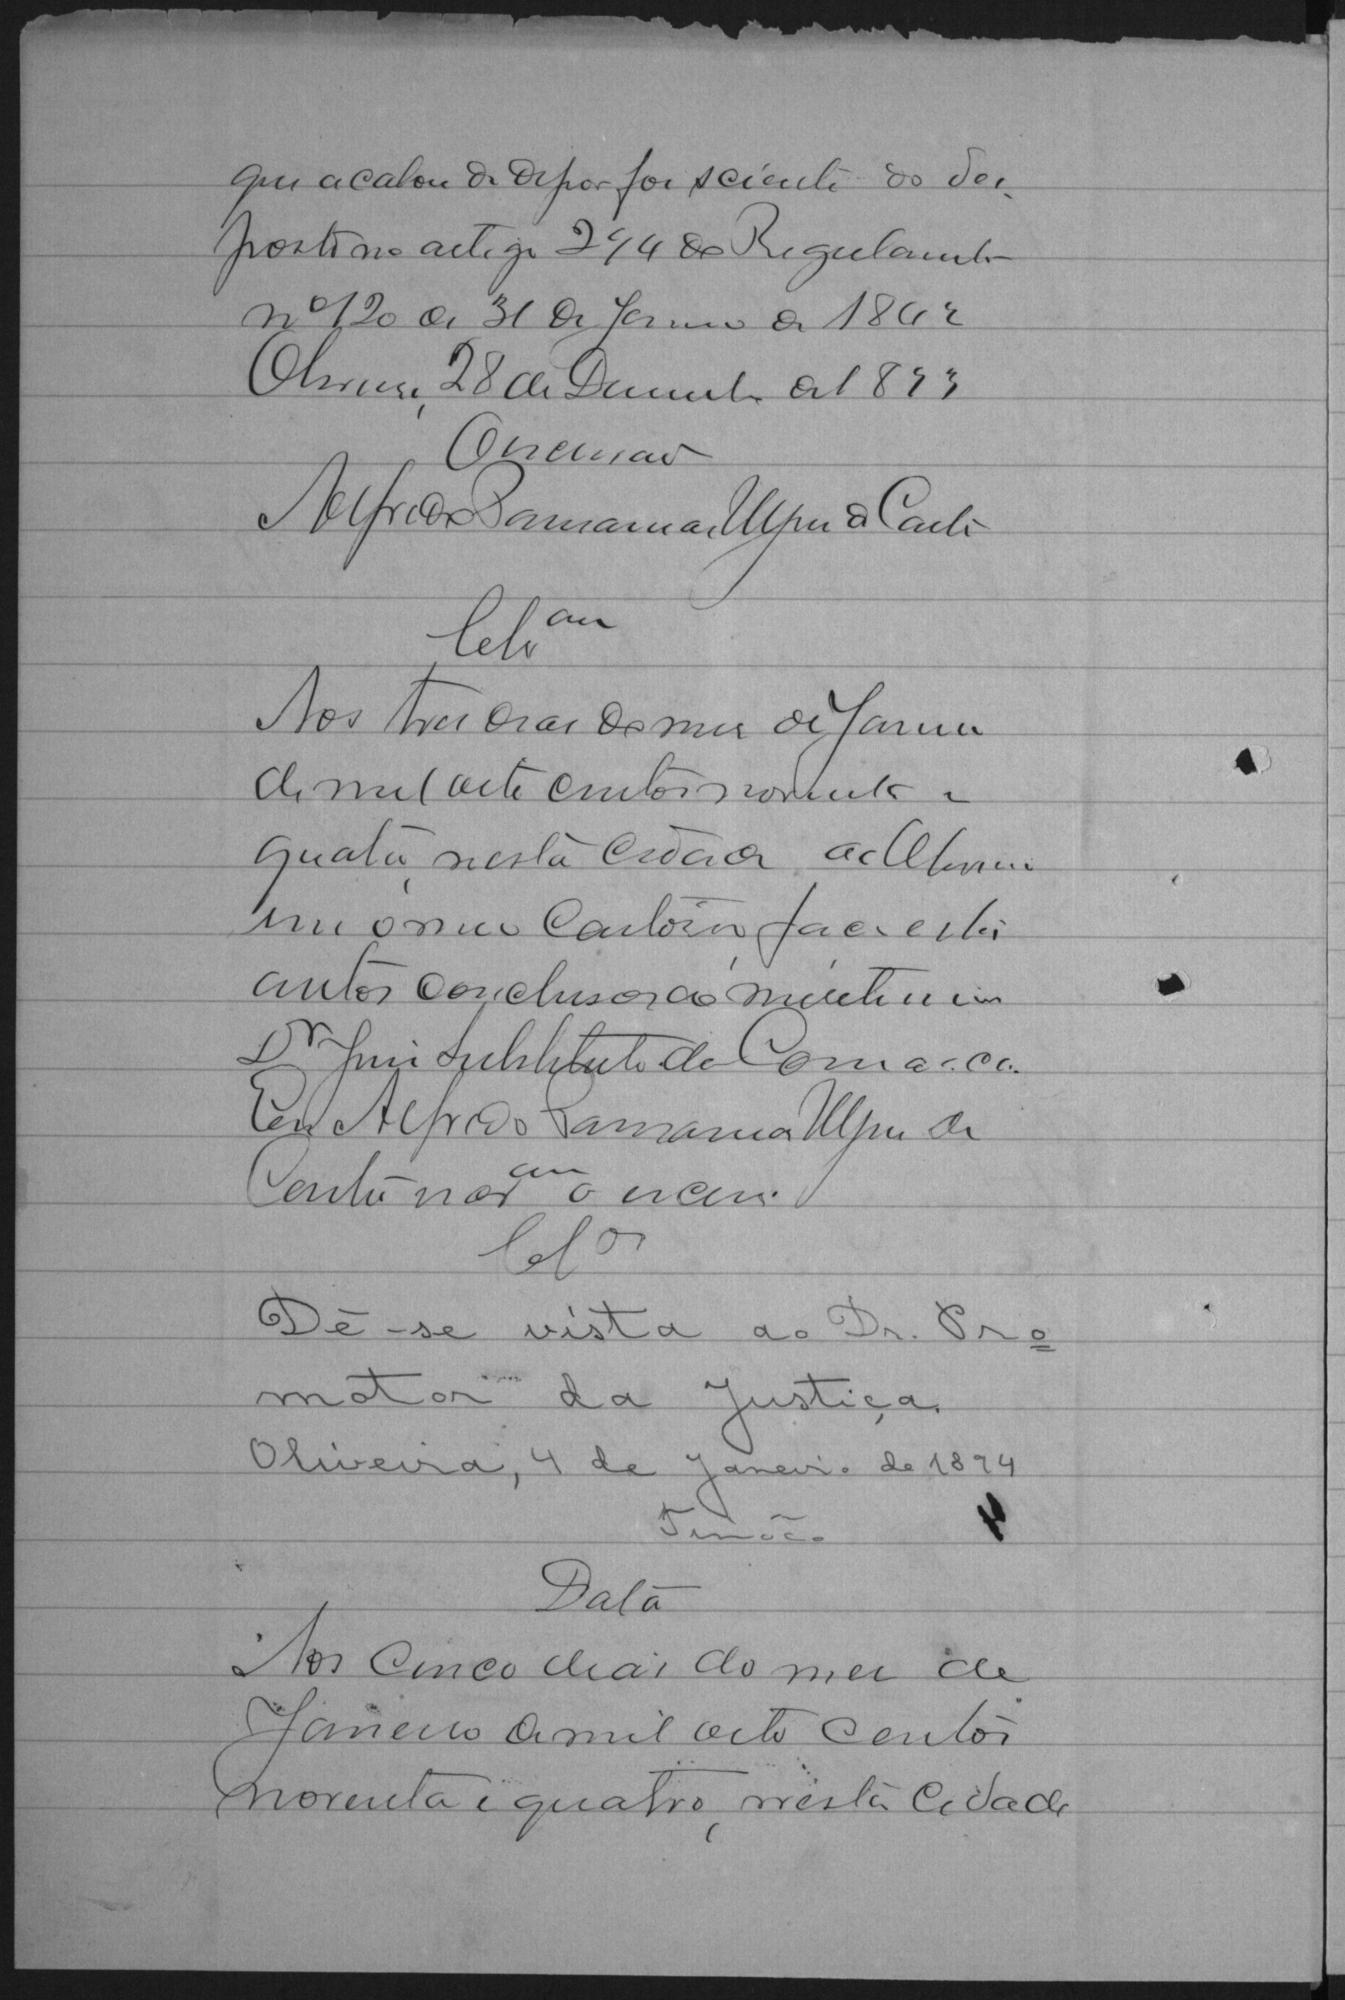 que acabou de depor foi sciente do des-
posto no artigo 294 do Regulamento
nº 120 de 31 de Janeiro de 1842
Oliveira, 28 de Dezembro de 1893
O escrivão
Alfredo
Cls.am
Aos tres dias do mez de Janeiro
de mil oito centos noventa e
quatro, nesta cidade de Oliveira
em o meu Cartorio, faço estes
autos conclusos ao
Dr Juiz Substituto da Comarca.
Eu Alfredo de
o escrevi
Cls.os
Dê-se vista ao Dr. Pro
motor da Justiça.
Oliveira, 4 de Janeiro de 1894
Data
Aos cinco dias do mez de
Janeiro de mil oito centos
noventa e quatro, nesta Cidade